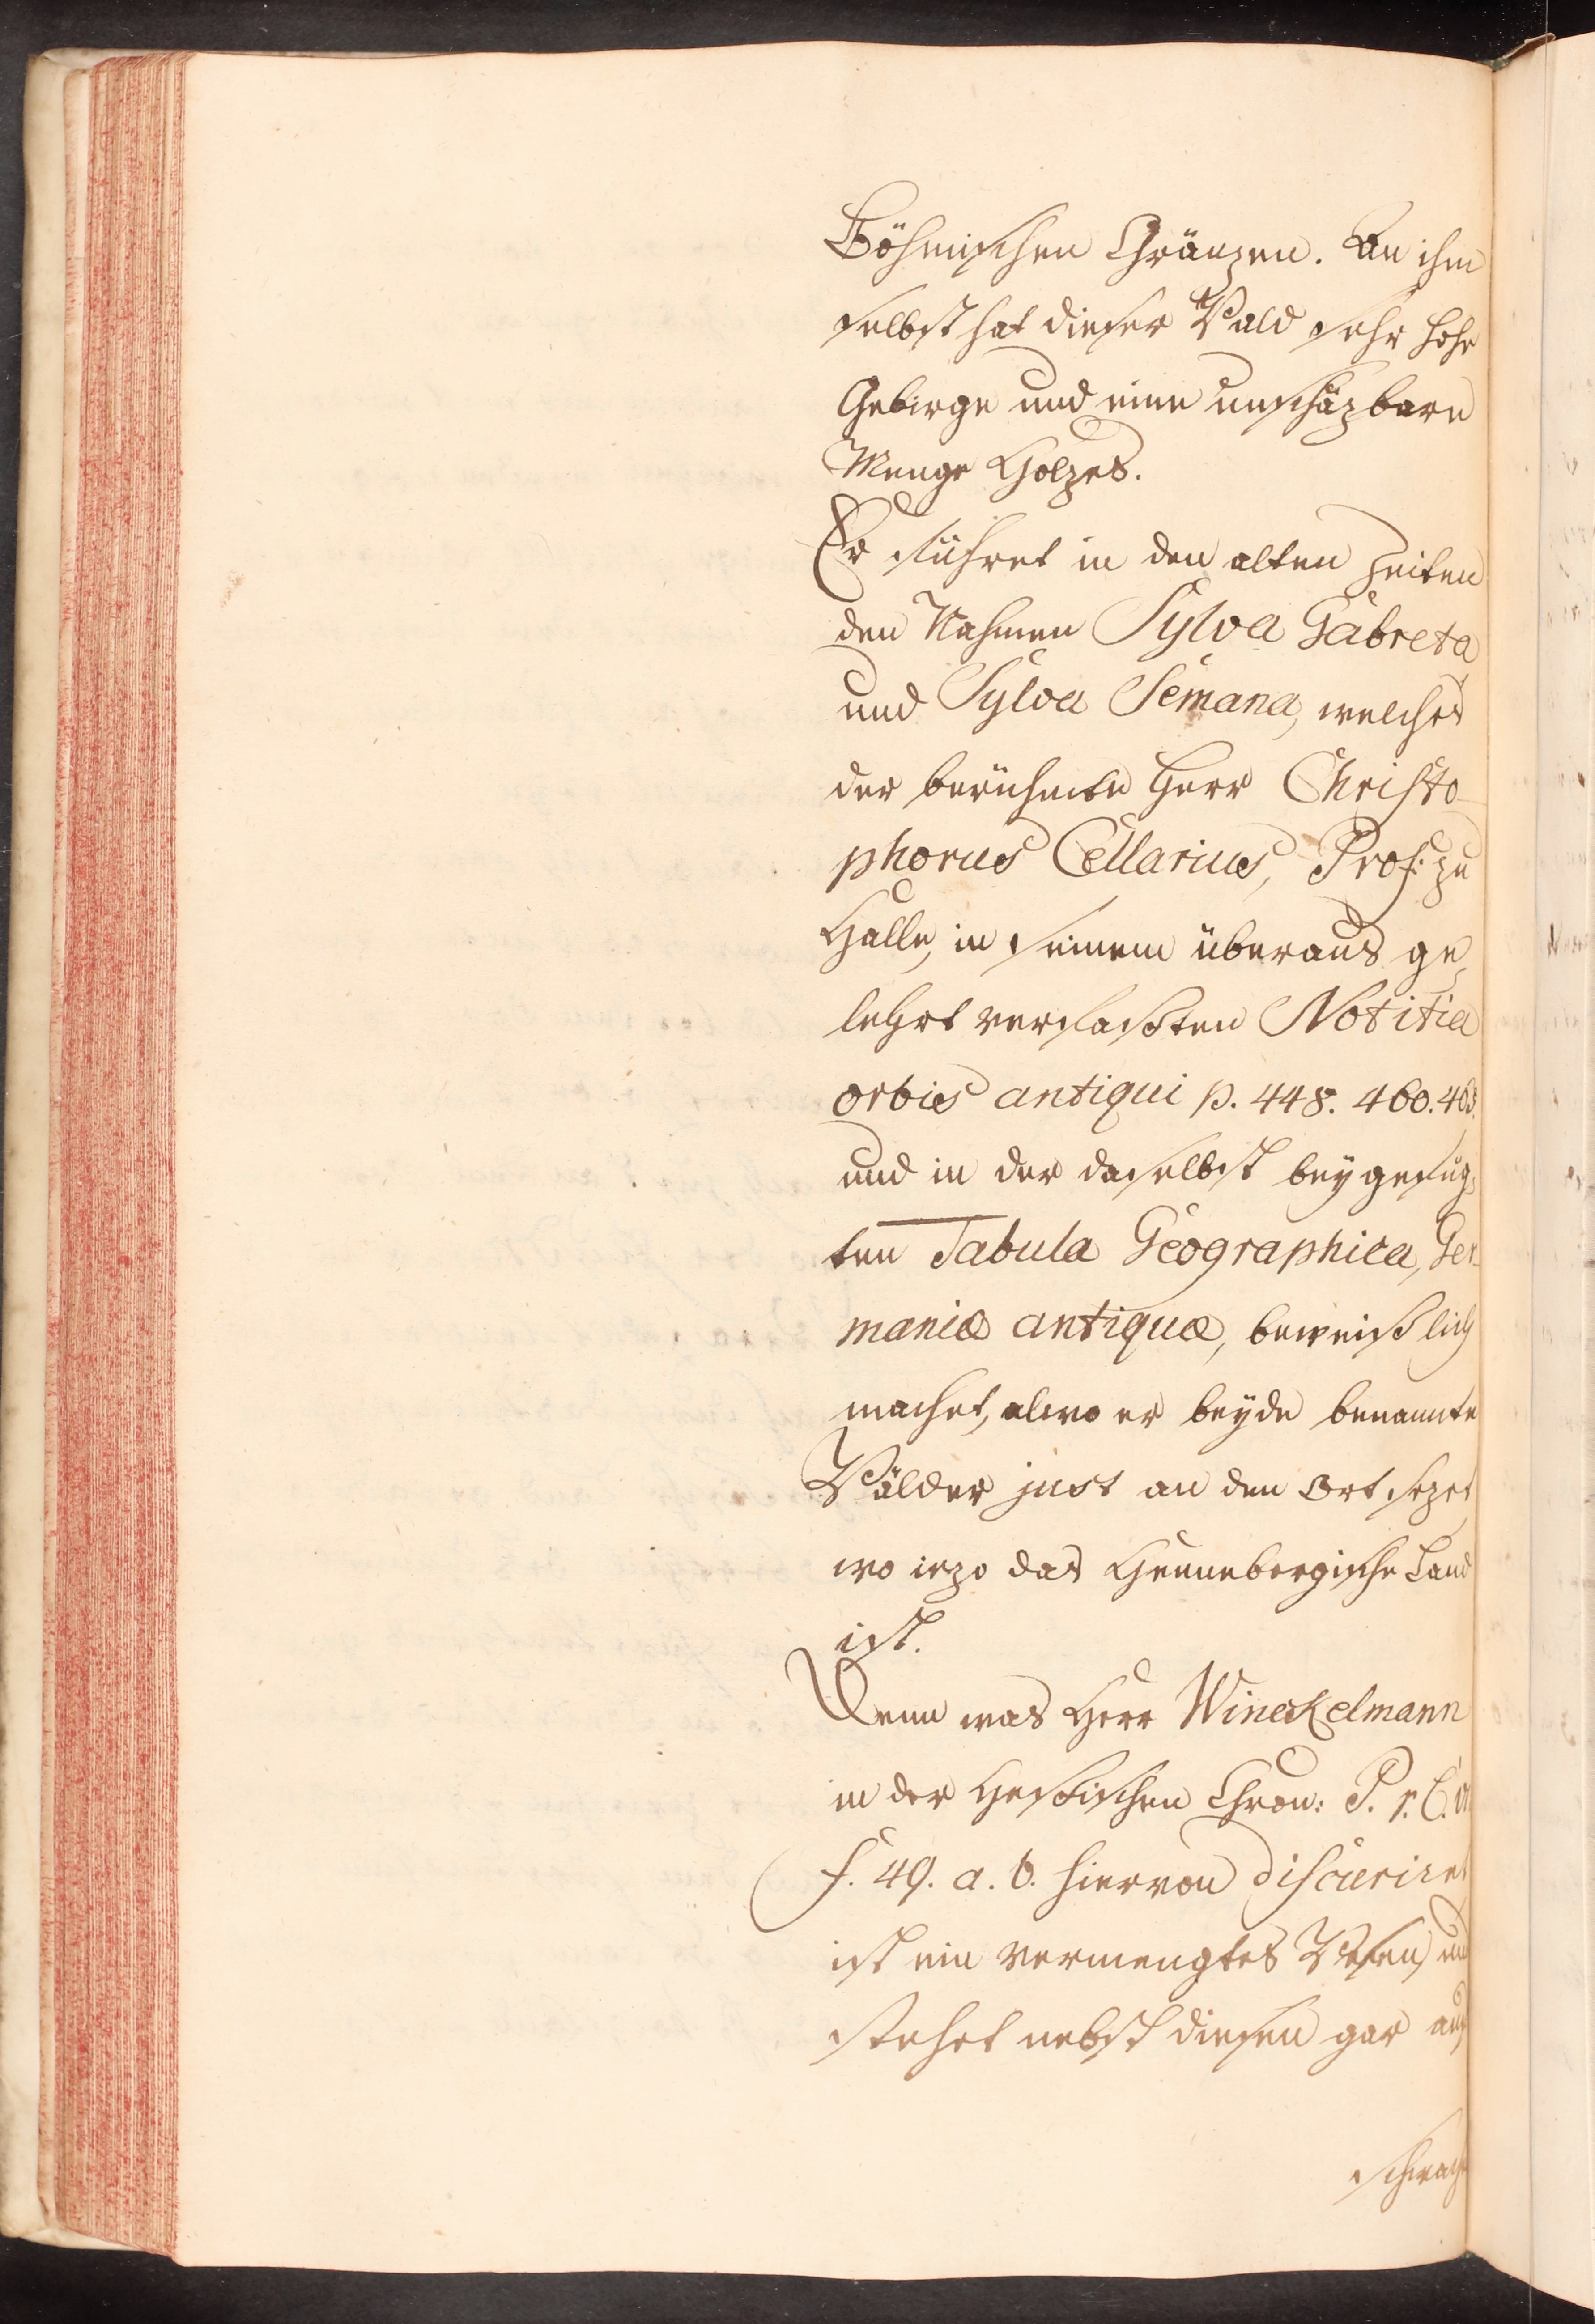 Böhmischen Gränzen. An ihm
selbst hat dieser Wald sehr hohe
Gebirge und eine unschäzbare
Menge Holzes.
Er führet in den alten Zeiten
den Nahmen Sylva Gabreta
und Sylva Semana, welches
der berühmte Herr Christo-
phorus Cellarius, Prof: zu
Halle, in seinem überaus ge-
lehrt verfaßten Notitia
orbis antiqui p. 448. 460.
und in der daselbst beygefüg-
ten Tabula Geographica, Ger-
maniæ antiquæ, beweißlich
machet, alwo er beyde benannte
Wälder just an den Ort sezet
wo iezo das Hennebergische Land
ist.
Denn was Herr Winckelmann
in der Hessischen Chron: P. 1. C.
f. 49. a. b. hiervon discuriret
ist ein vermengtes Wesen und
stehet nebst diesen gar auf
schwach